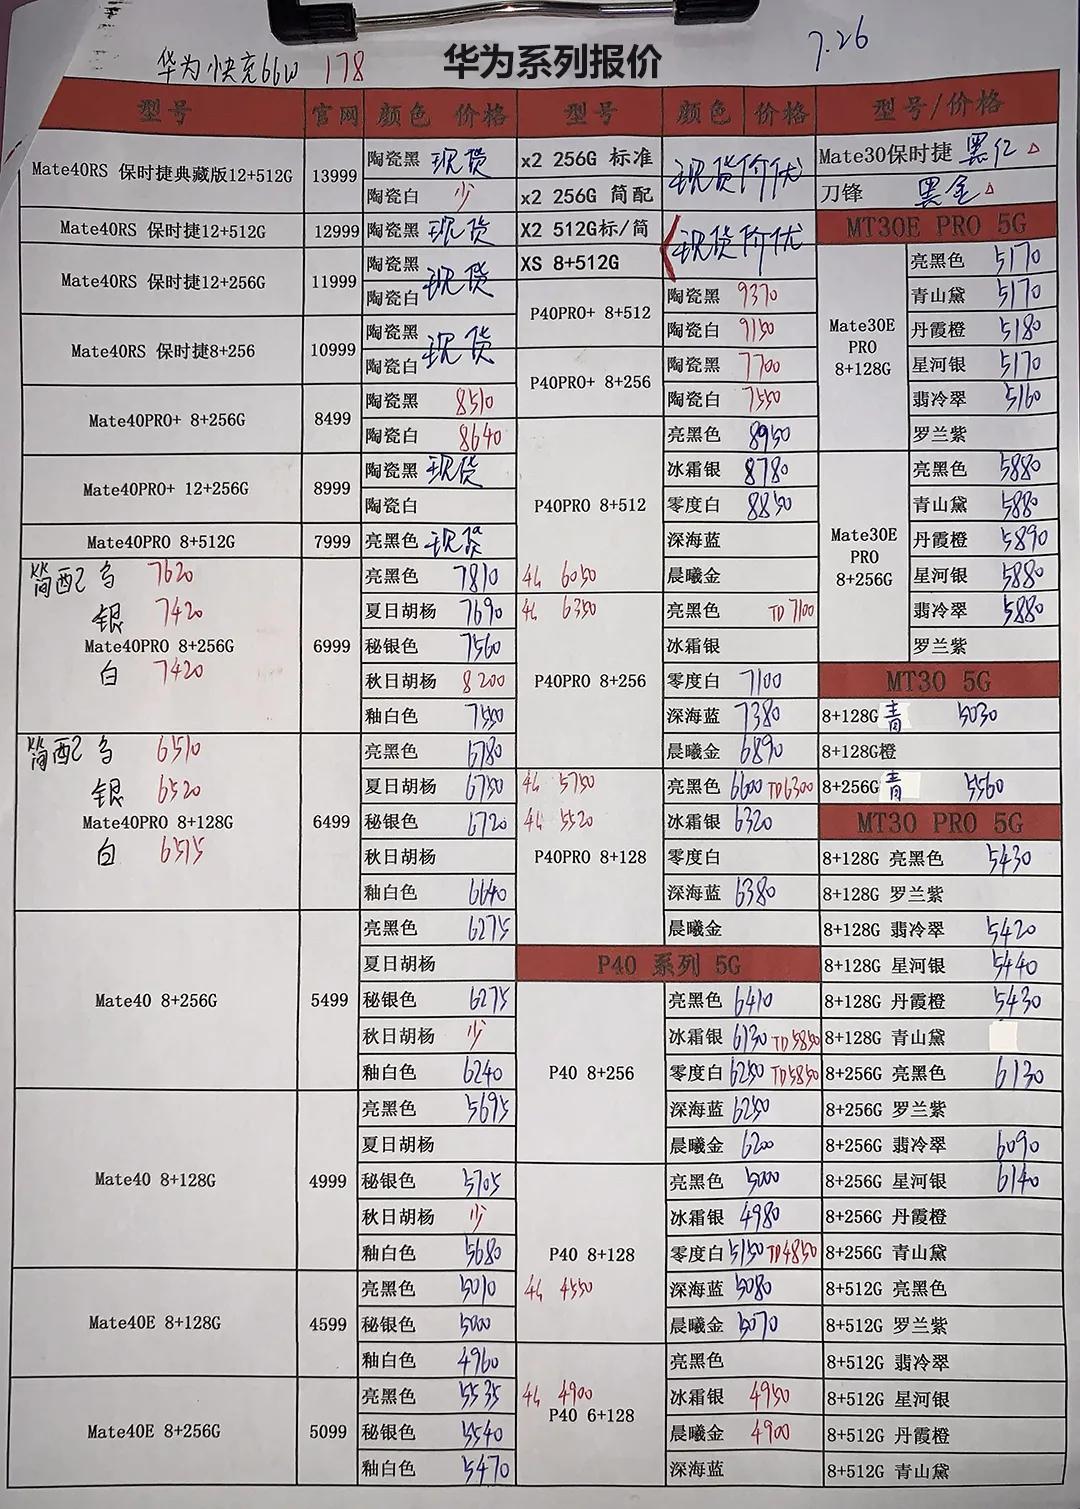 华为快充66W 178 华为系列报价 7.26
型号 官网 颜色 价格 型号 颜色 价格 型号/价格
Mate40RS 保时捷典藏版12+512G 13999 陶瓷黑 现货 x2 256G 标准 现货价优 Mate30保时捷 黑红 △
陶瓷白 少 x2 256G 简配 刀锋 黑金 △
Mate40RS 保时捷12+512G 12999 陶瓷黑 现货 X2 512G标/简 现货价优 MT30E PRO 5G
Mate40RS 保时捷12+256G 11999 陶瓷黑 现货 XS 8+512G Mate30E PRO 8+128G 亮黑色 5170
陶瓷白 P40PRO+ 8+512 陶瓷黑 9370 青山黛 5170
Mate40RS 保时捷8+256 10999 陶瓷黑 现货 陶瓷白 9150 丹霞橙 5180
陶瓷白 P40PRO+ 8+256 陶瓷黑 7700 星河银 5170
Mate40PRO+ 8+256G 8499 陶瓷黑 8510 陶瓷白 7550 翡冷翠 5160
陶瓷白 8640 P40PRO 8+512 亮黑色 8950 罗兰紫
Mate40PRO+ 12+256G 8999 陶瓷黑 现货 冰霜银 8780 Mate30E PRO 8+256G 亮黑色 5880
陶瓷白 零度白 8850 青山黛 5880
Mate40PRO 8+512G 7999 亮黑色 现货 深海蓝 丹霞橙 5890
简配 7620 亮黑色 7810 4G 6050 晨曦金 星河银 5880
银 7420 夏日胡杨 7690 4G 6350 亮黑色 TD7100 翡冷翠 5880
Mate40PRO 8+256G 6999 秘银色 7560 冰霜银 罗兰紫
白 7420 秋日胡杨 8200 P40PRO 8+256 零度白 7100 MT30 5G
釉白色 7550 深海蓝 7380 8+128G 青 5030
简配 6510 亮黑色 6780 晨曦金 6890 8+128G橙
银 6520 夏日胡杨 6750 4G 5750 亮黑色 6600 TD6300 8+256G 青 5560
Mate40PRO 8+128G 6499 秘银色 6720 4G 5520 冰霜银 6320 MT30 PRO 5G
白 6515 秋日胡杨 P40PRO 8+128 零度白 8+128G 亮黑色 5430
釉白色 6640 深海蓝 6380 8+128G 罗兰紫
亮黑色 6275 晨曦金 8+128G 翡冷翠 5420
夏日胡杨 P40 系列 5G 8+128G 星河银 5440
Mate40 8+256G 5499 秘银色 6275 亮黑色 6410 8+128G 丹霞橙 5430
秋日胡杨 少 冰霜银 6130 TD5850 8+128G 青山黛
釉白色 6240 P40 8+256 零度白 6250 TD5850 8+256G 亮黑色 6130
亮黑色 5695 深海蓝 6250 8+256G 罗兰紫
夏日胡杨 晨曦金 6200 8+256G 翡冷翠 6090
Mate40 8+128G 4999 秘银色 5705 亮黑色 5000 8+256G 星河银 6140
秋日胡杨 少 冰霜银 4980 8+256G 丹霞橙
釉白色 5680 P40 8+128 零度白 5150 TD4850 8+256G 青山黛
亮黑色 5010 4G 4550 深海蓝 5080 8+512G 亮黑色
Mate40E 8+128G 4599 秘银色 5000 晨曦金 5070 8+512G 罗兰紫
釉白色 4960 亮黑色 8+512G 翡冷翠
亮黑色 5535 4G 4900 P40 6+128 冰霜银 4950 8+512G 星河银
Mate40E 8+256G 5099 秘银色 5540 晨曦金 4900 8+512G 丹霞橙
釉白色 5470 深海蓝 8+512G 青山黛